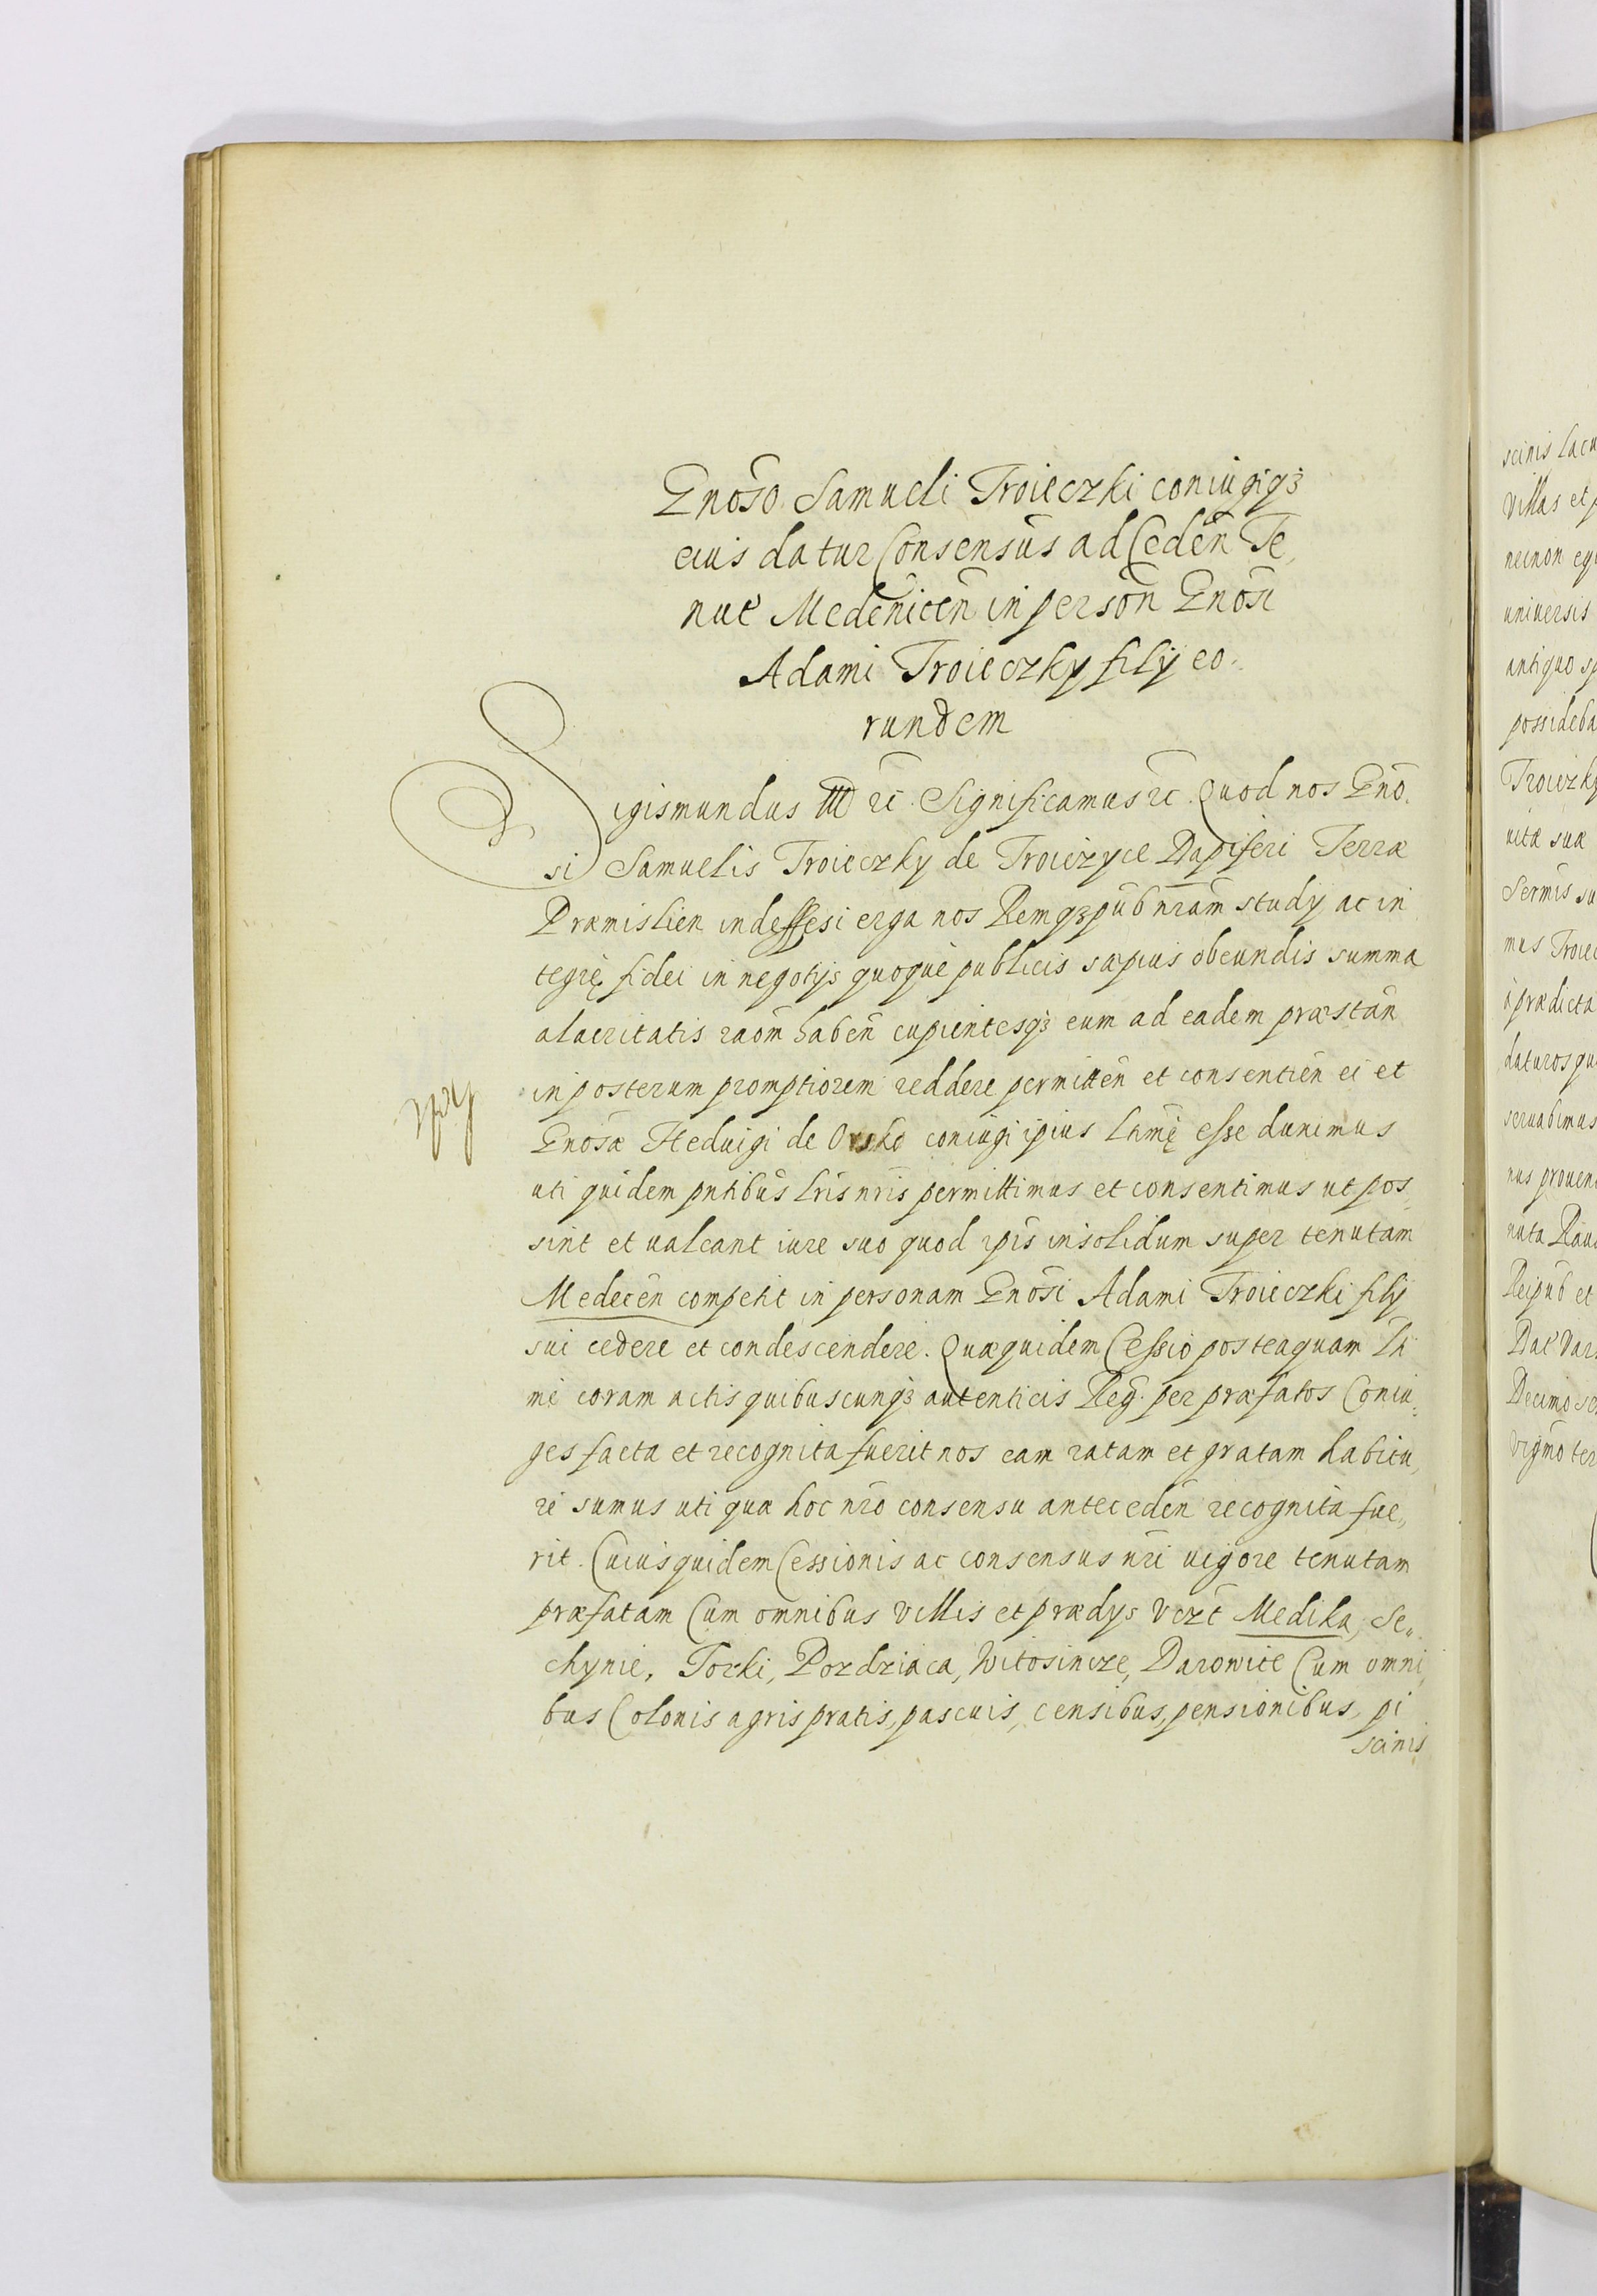 Gnoso Samueli Troieczki coniugiqȝ
eius datur Consensus ad Ceden̄ Te,
nut Medenicen̄ in person̄ Gnosi
Adami Troieczky filij eo-
rundem
Sigismundus III etc̄. Significamus etc̄. Quod nos Gno,
si Samuelis Troieczky de Troiczyce Dapiferi Terræ
Præmislien indeffesi erga nos Remqȝ pūb nr̄am study ac in
tegrę fidei in negotijs quoque publicis sæpius obeundis summa
alacritatis rāom haben̄ cupientesqȝ eum ad eadem præstan̄
in posterum promptiorem reddere permitten̄ et consentien̄ ei et
Gnosæ Heduigi de Orsko coniugi ip̄ius Ln̄mę esse duximus
uti quidem pn̄tibus Lr̄is nr̄is permittimus et consentimus ut pos,
sint et ualeant iure suo quod ip̄is insolidum super tenutam
Medecen̄ competit in personam Gnosi Adami Troieczki filij
sui cedere et condescendere. Quæquidem Cessio posteaquam Ln̄
mę coram actis quibuscunqȝ autenticis Reg. per præfatos Coniu:
ges facta et recognita fuerit nos eam ratam et gratam habitu,
ri sumus uti quæ hoc nr̄o consensu anteceden̄ recognita fue,,
rit. Cuius quidem Cessionis ac consensus nr̄i uigore tenutam
præfatam Cum omnibus Villis et prædys Vczt̄ Medika, Se,,
chynie, Torki, Pozdziaca, Witosincze, Darowice Cum omni,
bus Colonis agris pratis, pascuis, censibus, pensionibus, pi
scinis